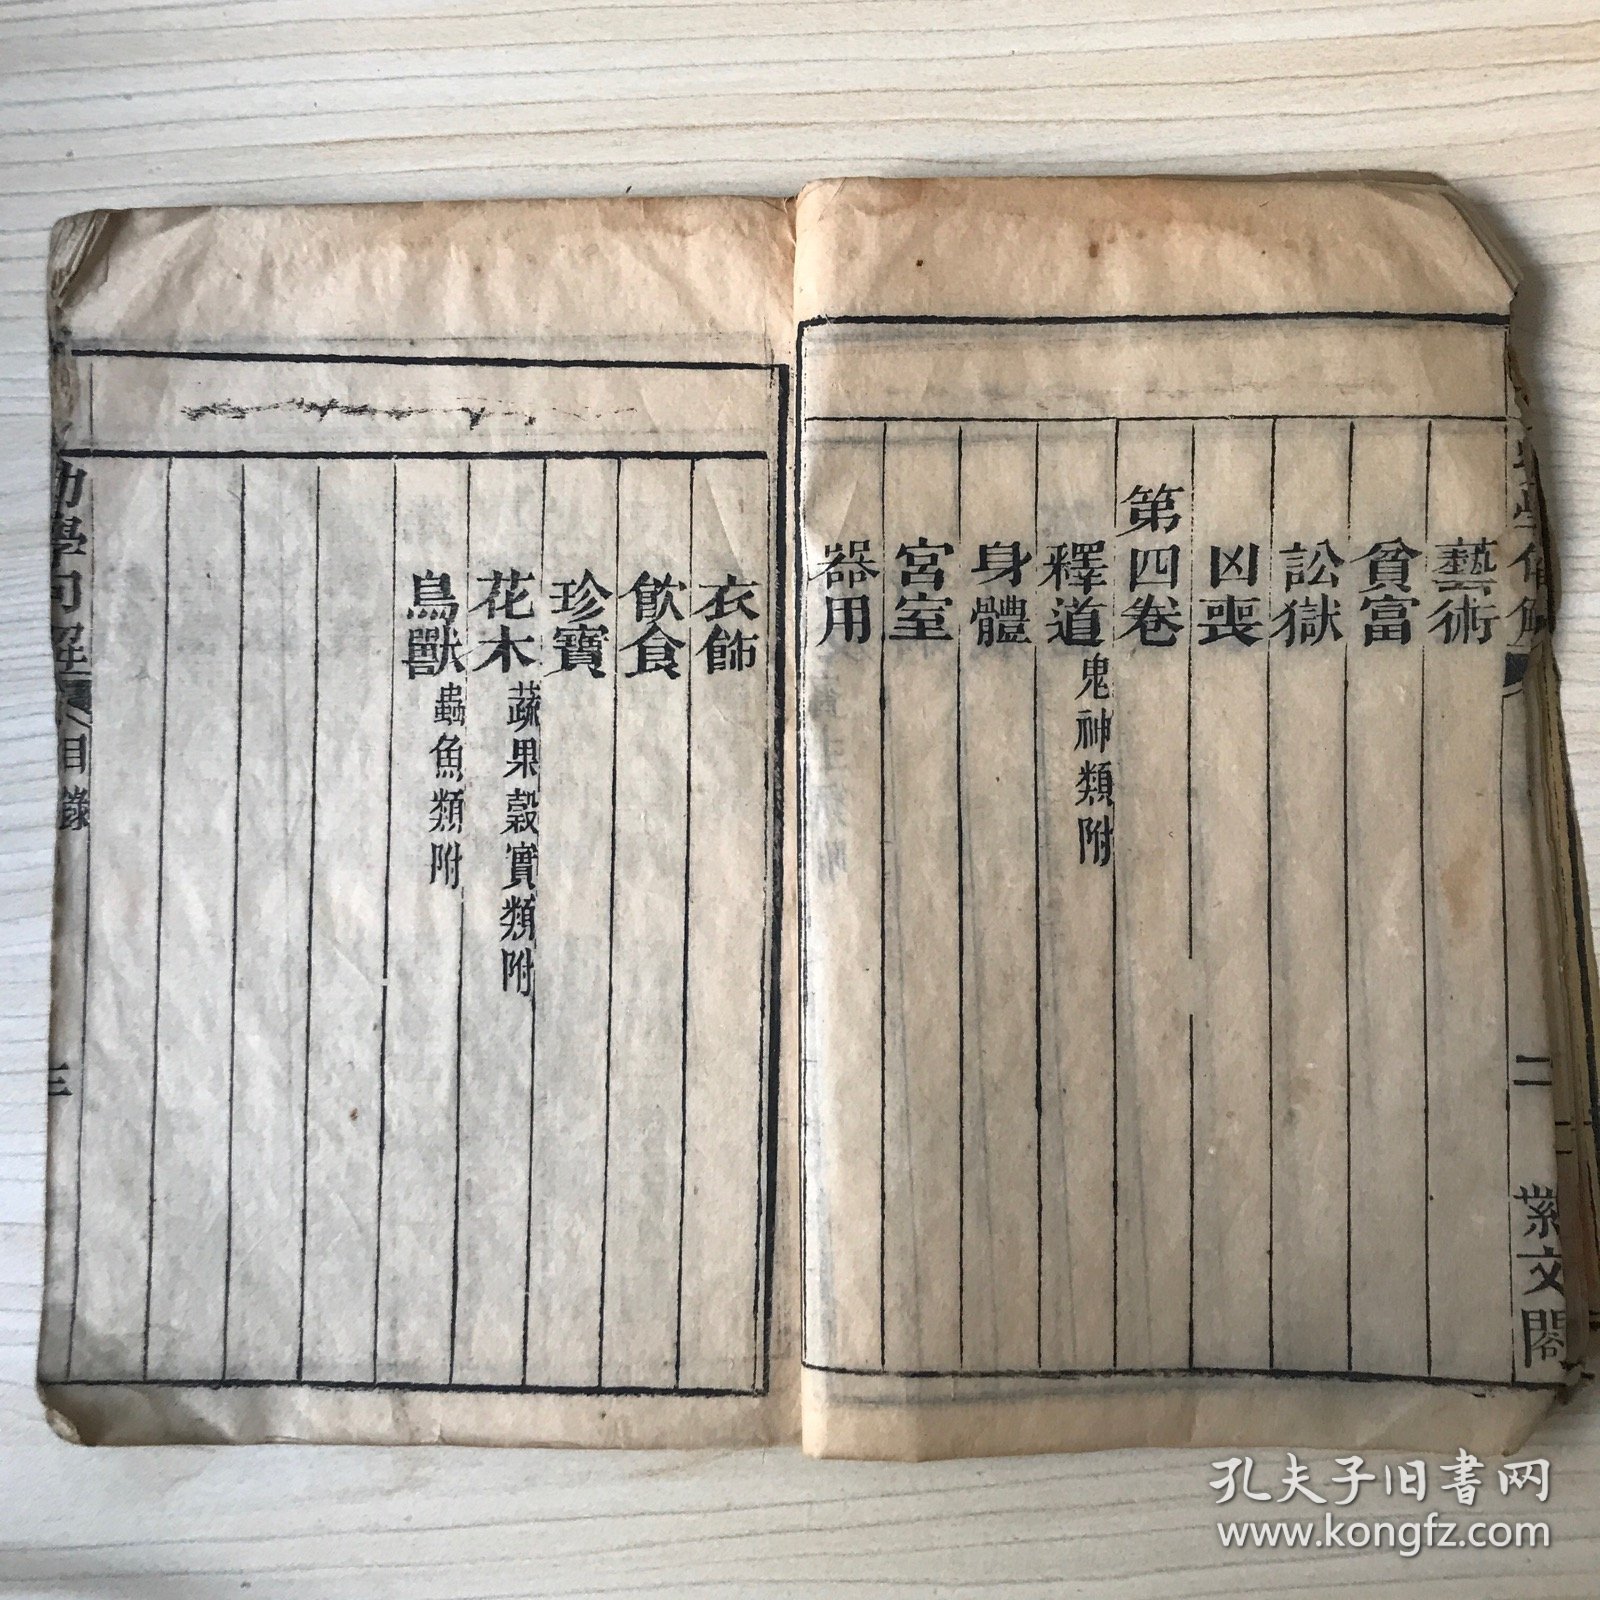 藝術
貧富
訟獄
凶喪
第四卷
釋道鬼神類附
身體
宮室
器用
二
紫文閣
衣飾
飲食
珍寶
花木蔬果穀實類附
鳥獸蟲魚類附
幼學句解
目錄
三
孔夫子旧书网
www.kongfz.com